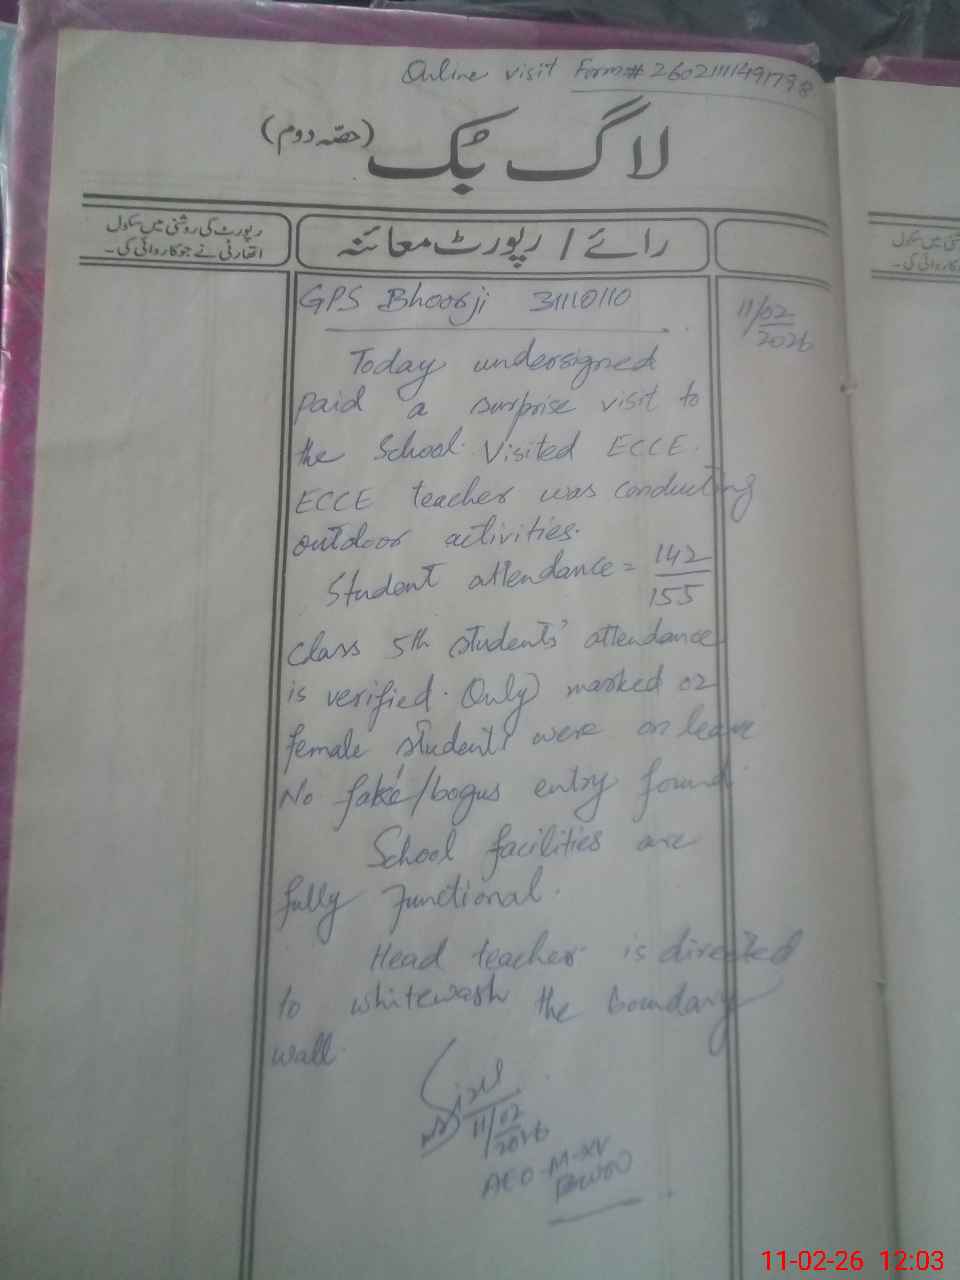 Online visit Form# 2602111491798
لاگ بک (حصّہ دوم)
رائے / رپورٹ معائنہ
رپورٹ کی روشنی میں سکول
اتھارٹی نے جو کاروائی کی۔
GPS Bhoorji 31110110
11/02
2026
Today undersigned
paid a surprise visit to
the School. Visited ECCE.
ECCE teacher was conducting
outdoor activities.
Student attendance = 142
155
Class 5th students' attendance
is verified. Only marked 02
female students were on leave
No fake/bogus entry found.
School facilities are
fully functional.
Head teacher is directed
to whitewash the boundary
wall.
11/02
2026
AEO-M-XV
BWN
11-02-26 12:03